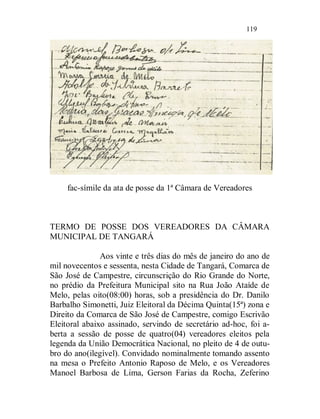 119
Manoel Barbosa de Lima
Antonio Raposo
Maria Correia de Melo
Adolfo Barreto
José Barbosa
Maria das Graças de Mélo
fac-simile da ata de posse da 1ª Câmara de Vereadores
TERMO DE POSSE DOS VEREADORES DA CÂMARA
MUNICIPAL DE TANGARÁ
Aos vinte e três dias do mês de janeiro do ano de
mil novecentos e sessenta, nesta Cidade de Tangará, Comarca de
São José de Campestre, circunscrição do Rio Grande do Norte,
no prédio da Prefeitura Municipal sito na Rua João Ataíde de
Melo, pelas oito(08:00) horas, sob a presidência do Dr. Danilo
Barbalho Simonetti, Juiz Eleitoral da Décima Quinta(15ª) zona e
Direito da Comarca de São José de Campestre, comigo Escrivão
Eleitoral abaixo assinado, servindo de secretário ad-hoc, foi a-
berta a sessão de posse de quatro(04) vereadores eleitos pela
legenda da União Democrática Nacional, no pleito de 4 de outu-
bro do ano(ilegível). Convidado nominalmente tomando assento
na mesa o Prefeito Antonio Raposo de Melo, e os Vereadores
Manoel Barbosa de Lima, Gerson Farias da Rocha, Zeferino